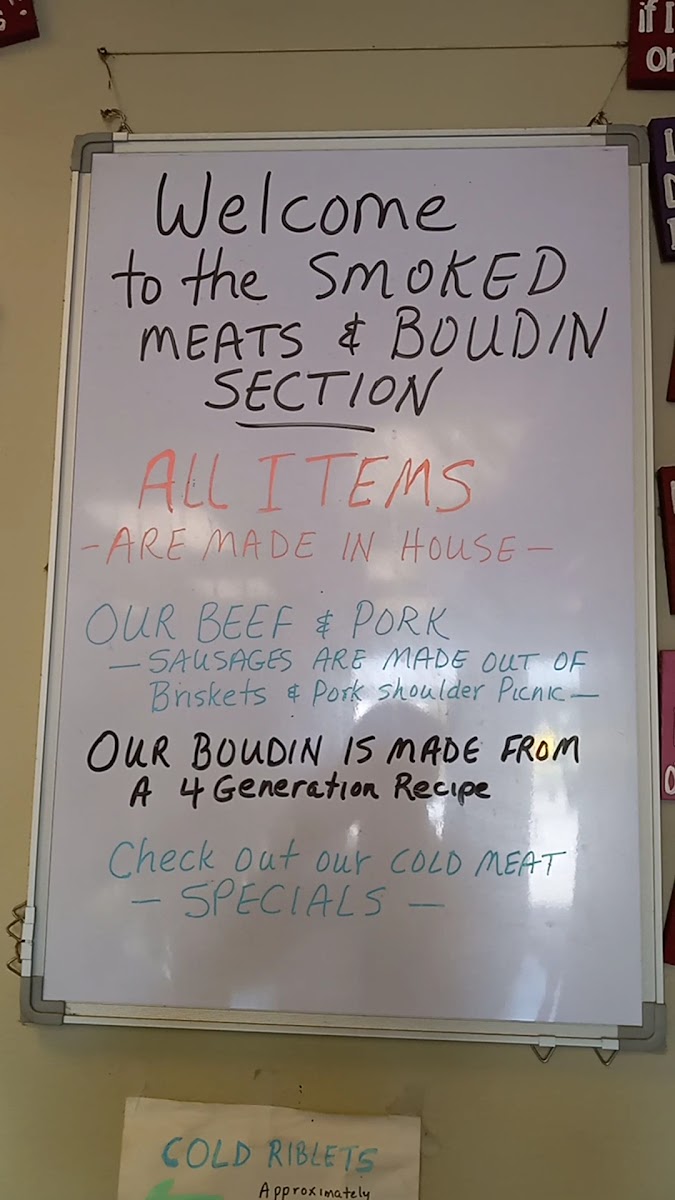 if I
Oh
Welcome
to the SMOKED
MEATS & BOUDIN
SECTION
ALL ITEMS
- ARE MADE IN HOUSE -
OUR BEEF & PORK
- SAUSAGES ARE MADE OUT OF
Briskets & Pork Shoulder Picnic -
OUR BOUDIN IS MADE FROM
A 4 Generation Recipe
Check out our COLD MEAT
- SPECIALS -
COLD RIBLETS
Approximately